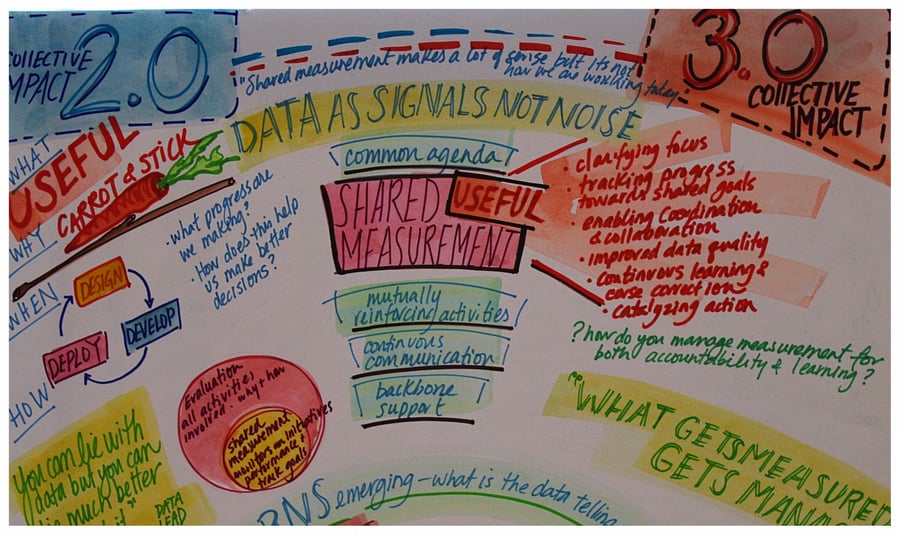 COLLECTIVE
IMPACT 2.0
"Shared measurement makes a lot of sense but its not
how we are working today."
3.0
COLLECTIVE
IMPACT
DATA AS SIGNALS NOT NOISE
WHAT
USEFUL
CARROT & STICK
WHY
• what progress are
we making?
• How does this help
us make better
decisions?
WHEN
DESIGN
DEVELOP
DEPLOY
HOW
common agenda
SHARED
MEASUREMENT
USEFUL
mutually
reinforcing activities
continuous
communication
backbone
support
• clarifying focus
• tracking progress
towards shared goals
• enabling coordination
& collaboration
• improved data quality
• continuous learning &
corse correction
• catalyzing action
? how do you manage measurement for
both accountability & learning?
Evaluation
all activities
involved. why + how
Shared
measurement
monitors an initiatives
performance +
track goals
"WHAT GETS MEASURED
GETS
You can lie with
data but you can
much better
DATA
emerging – what is the data telling